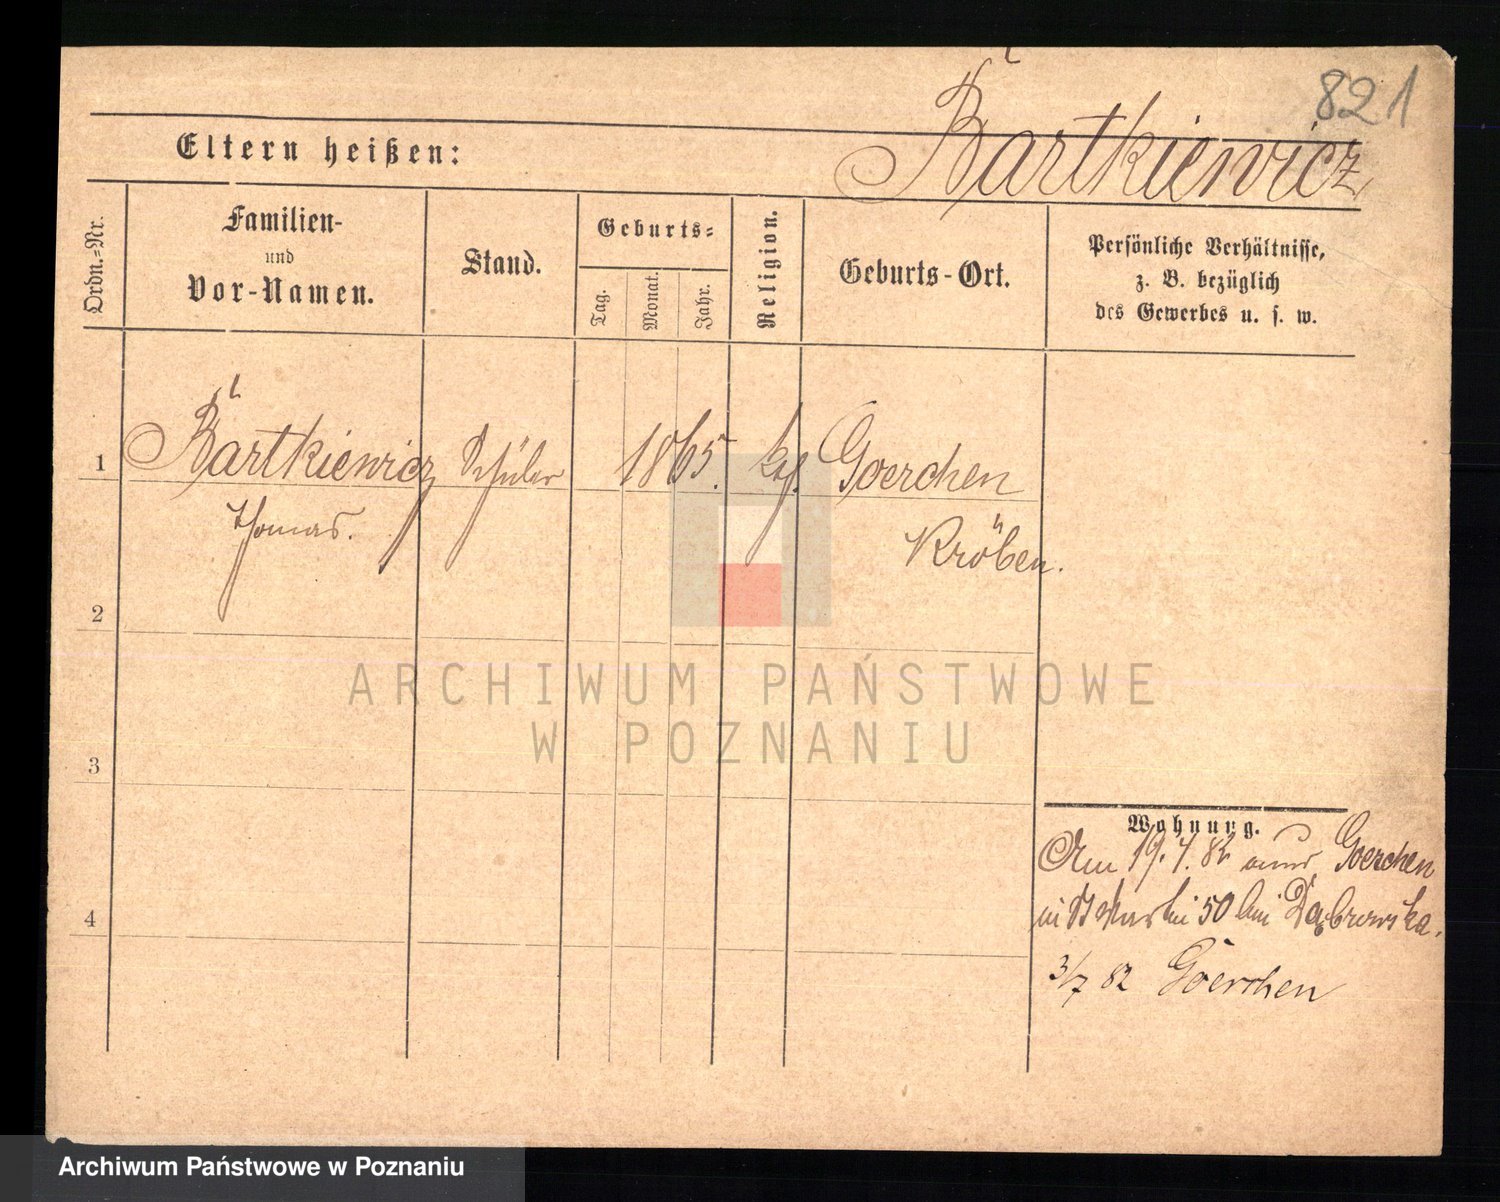 821
Bartkiewicz
Eltern heißen:
Ordn.=Nr.
Familien-
und
Vor-Namen.
Stand.
Geburts=
Tag.
Monat.
Jahr.
Religion.
Geburts-Ort.
Persönliche Verhältnisse,
z. B. bezüglich
des Gewerbes u. s. w.
1
Bartkiewicz Schüler 1865. kth. Goerchen
Thomas. Kröben.
2
3
4
ARCHIWUM PAŃSTWOWE
W POZNANIU
Wohnung.
Am 19. 4. 82 Goerchen
50 bei Dąbrowska.
3/7 82 Goerchen
Archiwum Państwowe w Poznaniu